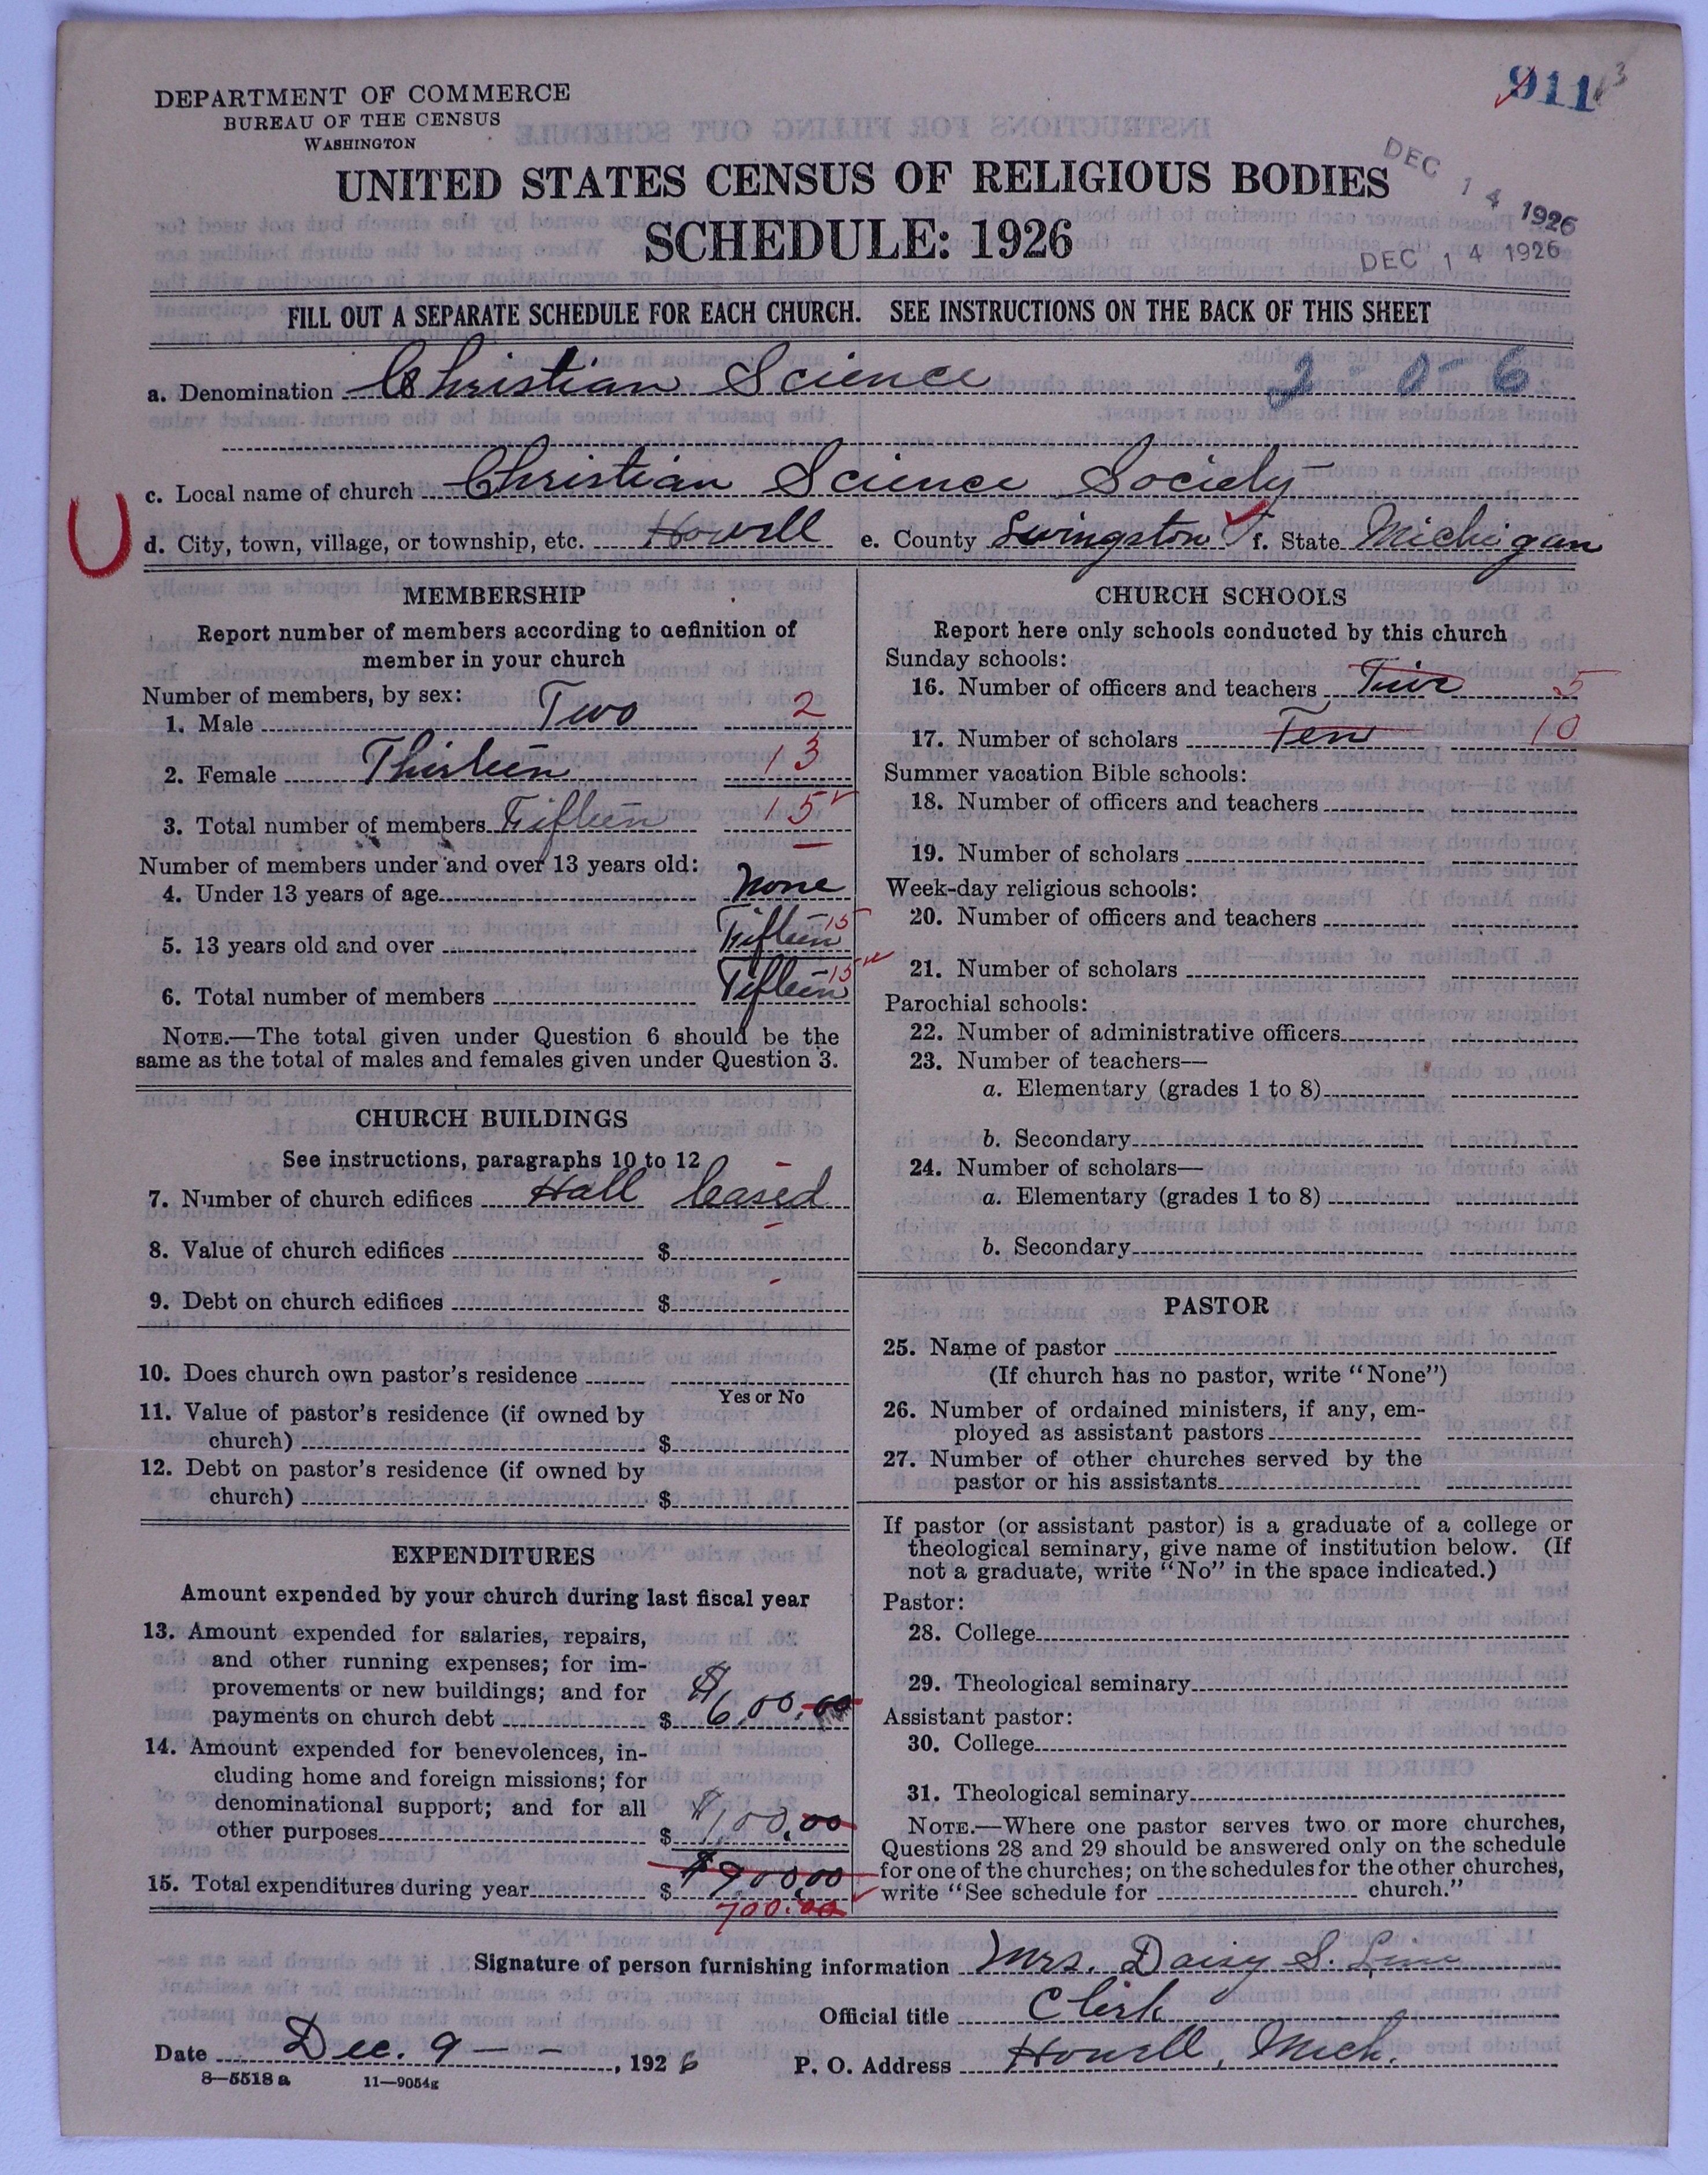 911
DEPARTMENT OF COMMERCE
BUREAU OF THE CENSUS
WASHINGTON
UNITED STATES CENSUS OF RELIGIOUS BODIES
SCHEDULE: 1926
DEC 14 1926
DEC 14 1926
FILL OUT A SEPARATE SCHEDULE FOR EACH CHURCH. SEE INSTRUCTIONS ON THE BACK OF THIS SHEET
a. Denomination Christian Science 2-0-6
c. Local name of church Christian Science Society
d. City, town, village, or township, etc. Howell e. County Livingston f. State Michigan
MEMBERSHIP
Report number of members according to definition of
member in your church
Number of members, by sex:
1. Male Two 2
2. Female Thirteen 13
3. Total number of members Fifteen 15
Number of members under and over 13 years old:
4. Under 13 years of age None
5. 13 years old and over Fifteen 15
6. Total number of members Fifteen 15
NOTE.—The total given under Question 6 should be the
same as the total of males and females given under Question 3.
CHURCH BUILDINGS
See instructions, paragraphs 10 to 12
7. Number of church edifices Hall leased
8. Value of church edifices $
9. Debt on church edifices $
10. Does church own pastor's residence
Yes or No
11. Value of pastor's residence (if owned by
church) $
12. Debt on pastor's residence (if owned by
church) $
EXPENDITURES
Amount expended by your church during last fiscal year
13. Amount expended for salaries, repairs,
and other running expenses; for im-
provements or new buildings; and for
payments on church debt $ $600.00
14. Amount expended for benevolences, in-
cluding home and foreign missions; for
denominational support; and for all
other purposes $ $100.00
15. Total expenditures during year $ $700.00
700.00
CHURCH SCHOOLS
Report here only schools conducted by this church
Sunday schools:
16. Number of officers and teachers Five 5
17. Number of scholars Ten 10
Summer vacation Bible schools:
18. Number of officers and teachers
19. Number of scholars
Week-day religious schools:
20. Number of officers and teachers
21. Number of scholars
Parochial schools:
22. Number of administrative officers
23. Number of teachers—
a. Elementary (grades 1 to 8)
b. Secondary
24. Number of scholars—
a. Elementary (grades 1 to 8)
b. Secondary
PASTOR
25. Name of pastor
(If church has no pastor, write "None")
26. Number of ordained ministers, if any, em-
ployed as assistant pastors
27. Number of other churches served by the
pastor or his assistants
If pastor (or assistant pastor) is a graduate of a college or
theological seminary, give name of institution below. (If
not a graduate, write "No" in the space indicated.)
Pastor:
28. College
29. Theological seminary
Assistant pastor:
30. College
31. Theological seminary
NOTE.—Where one pastor serves two or more churches,
Questions 28 and 29 should be answered only on the schedule
for one of the churches; on the schedules for the other churches,
write "See schedule for church."
Signature of person furnishing information Mrs. Daisy S.
Official title Clerk
Date Dec. 9 — —, 1926 P. O. Address Howell, Mich.
8—5518 a 11—9054g